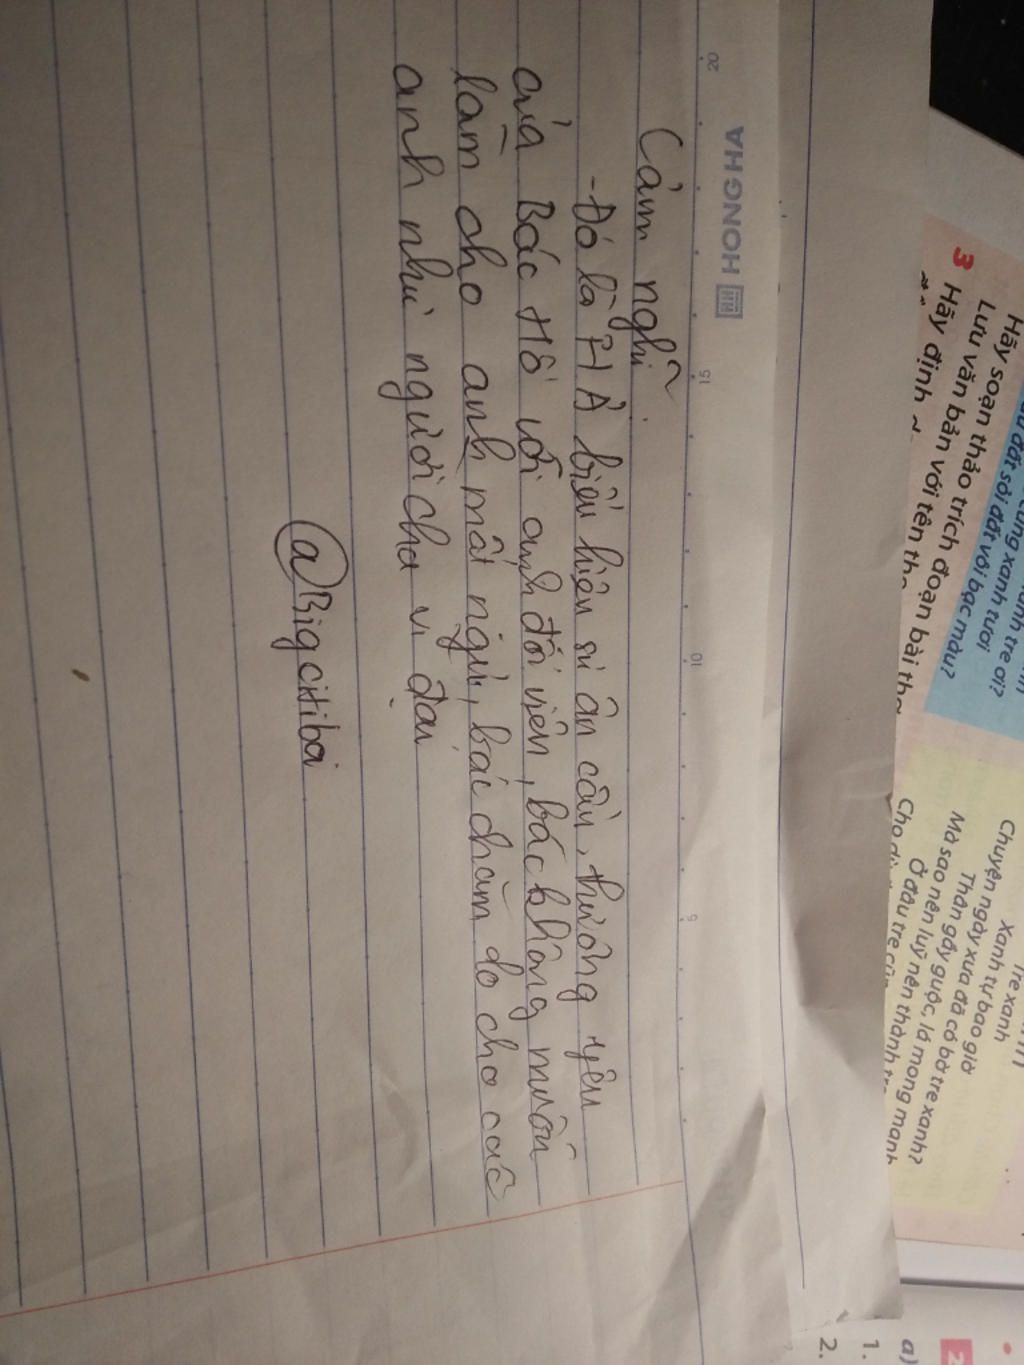 HONG HA
20 15 10 5
Cảm nghĩ
- Đó là HẢ biểu hiện sự ân cần, thương yêu
của Bác Hồ với anh đội viên, bác không muốn
làm cho anh mất ngủ, bác chăm lo cho các
anh như người cha vĩ đại
@Bigcitiboi
Hãy soạn thảo trích đoạn bài thơ
Lưu văn bản với tên
3 Hãy định
cũng xanh tươi
đất sỏi đất vôi bạc màu?
Tre xanh
Xanh tự bao giờ
Chuyện ngày xưa đã có bờ tre xanh?
Thân gầy guộc, lá mong manh
Mà sao nên luỹ nên thành
Ở đâu tre
Cho dù
2
a)
1.
2.